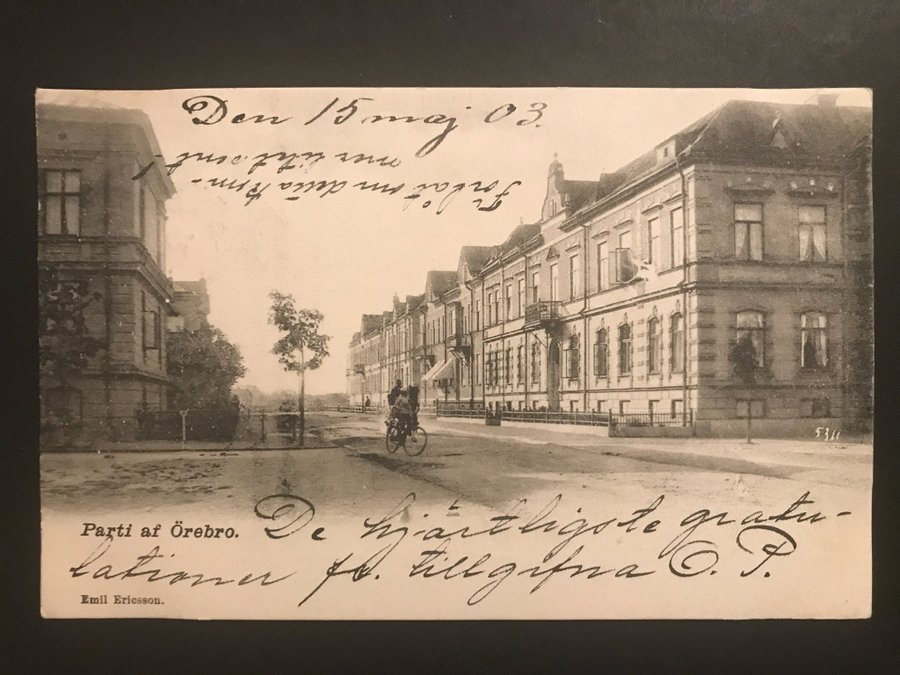 Den 15 maj 03.
Förlåt om dessa kom-
mer litet sent
5311
Parti af Örebro.
De hjärtligste gratu-
lationer fr. tillgifna O. P.
Emil Ericsson.